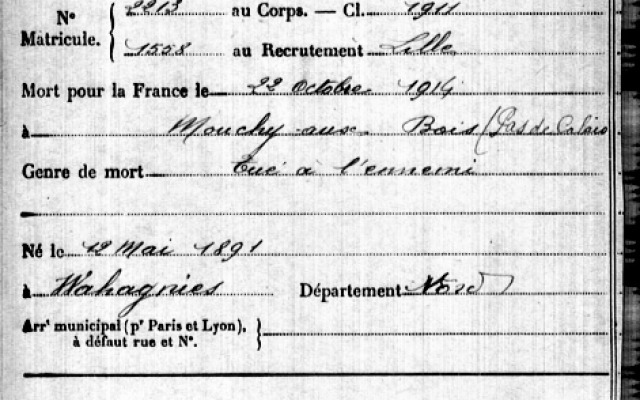 2213 au Corps. — Cl. 1911
N°
Matricule.
1558 au Recrutement Lille
Mort pour la France le 22 Octobre 1914
à Monchy aux Bois (Pas de Calais
Genre de mort Tué à l'ennemi
Né le 12 Mai 1891
à Wahagnies Département Nord
Arrt municipal (pr Paris et Lyon),
à défaut rue et N°.